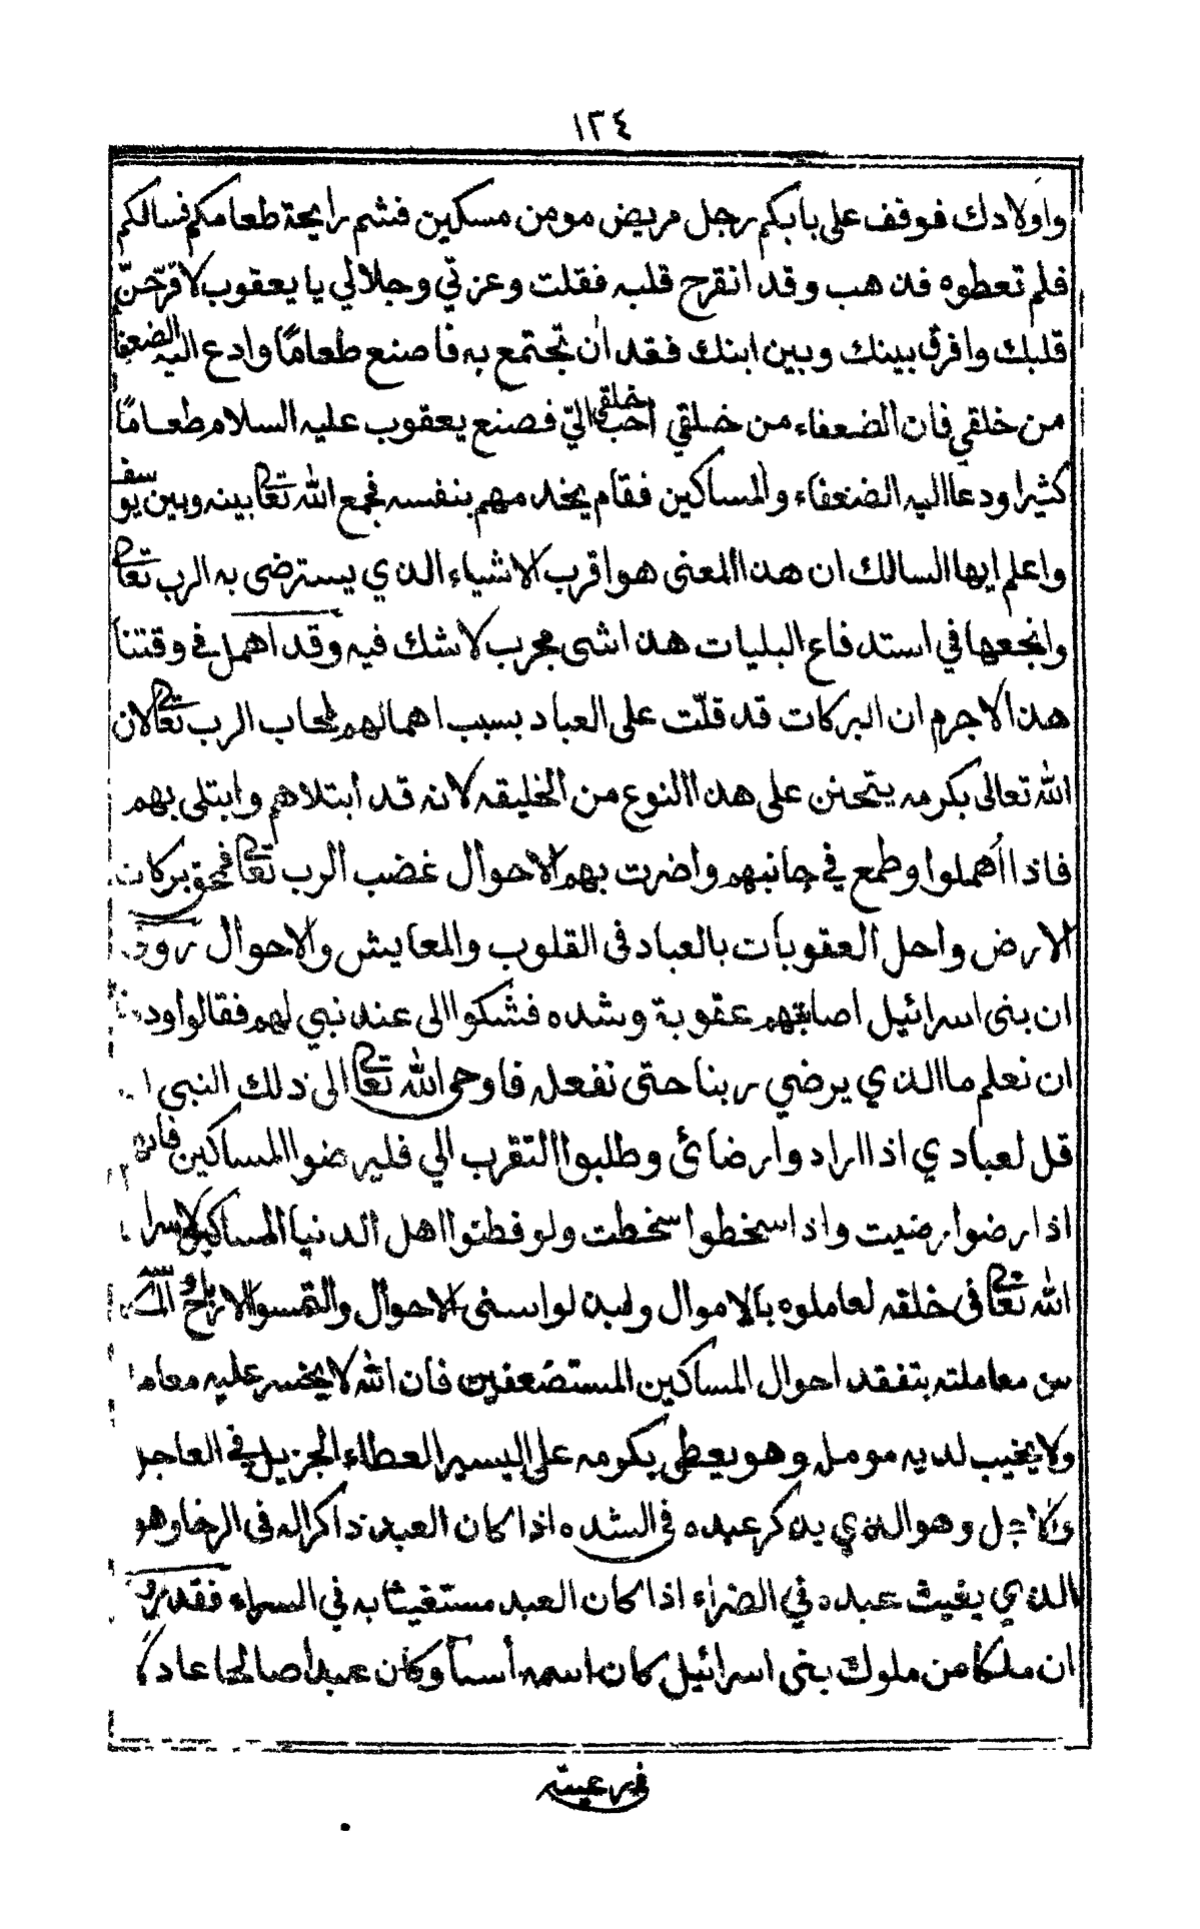 ١٣٤
واولادك فوقف على بابكم رجل مريض مومن مسكين فشم رايحة طعامكم فسالكم
فلم تعطوه فذهب وقد انقرح قلبه فقلت وعزتي وجلالي يا يعقوب لاقرّحنّ
قلبك وافرق بينك وبين ابنك فقد ان تجتمع به فاصنع طعامًا وادع اليه الضعفا
من خلقي فان الضعفاء من خلقي احب خلقي اليّ فصنع يعقوب عليه السلام طعامًا
كثيرا ودعا اليه الضعفاء والمساكين فقام يخدمهم بنفسه فجمع الله تعا بينه وبين يوسف
واعلم ايها السالك ان هذا المعنى هو اقرب الاشياء الذي يسترضى به الرب تعا
وانجعها في استدفاع البليات هذا شى مجرب لاشك فيه وقد اهمل في وقتنا
هذا لاجرم ان البركات قد قلّت على العباد بسبب اهمالهم لجاب الرب تعا لان
الله تعالى بكرمه يتحنن على هذا النوع من الخليقه لانه قد ابتلاهم وابتلى بهم
فاذا اُهملوا وطمع في جانبهم واضرت بهم الاحوال غضب الرب تعا فمحق بركات
الارض واحل العقوبات بالعباد فى القلوب والمعايش والاحوال روى
ان بنى اسرائيل اصابتهم عقوبة وشده فشكوا الى عند نبي لهم فقالوا وددنا
ان نعلم ما الذي يرضي ربنا حتى نفعله فاوحى الله تعا الى ذلك النبي ا
قل لعبادي اذا ارادوا رضائى وطلبوا التقرب الي فليرضوا المساكين فان
اذا رضوا رضيت واذا سخطوا سخطت ولو فطنوا اهل الدنيا المساكين لاسرا
الله تعا فى خلقه لعاملوه بالاموال ولبذلوا سنى الاحوال والتمسوا الارباح
من معاملته بتفقد احوال المساكين المستضعفين فان الله لا يخسر عليه معام
ولا يخيب لديه مومل وهو يعطى بكرمه على اليسير العطاء الجزيل في العاجل
والاجل وهو الذي يذكر عبده فى الشده اذا كان العبد ذاكرا له فى الرخا وهو
الذي يغيث عبده في الضراء اذا كان العبد مستغيثا به في السراء فقد روى
ان ملكا من ملوك بنى اسرائيل كان اسمه أسا وكان عبدا صالحا عادلا
فى رعيته